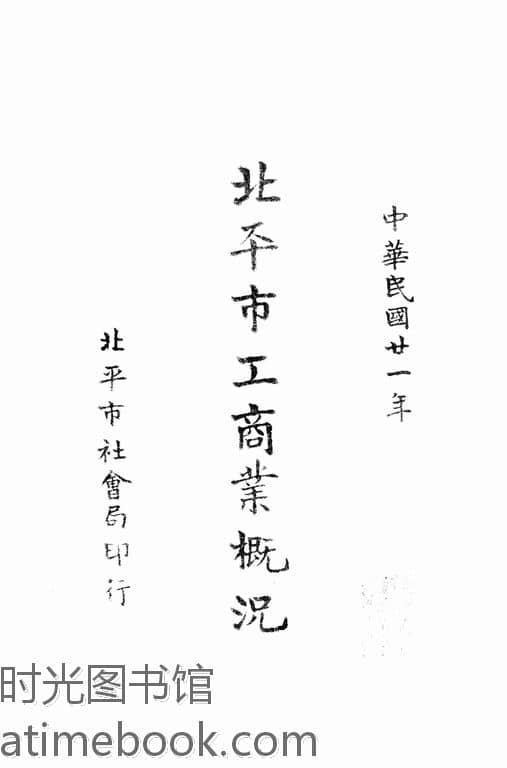 中華民國廿一年
北平市工商業概況
北平市社會局印行
时光图书馆
atimebook.com